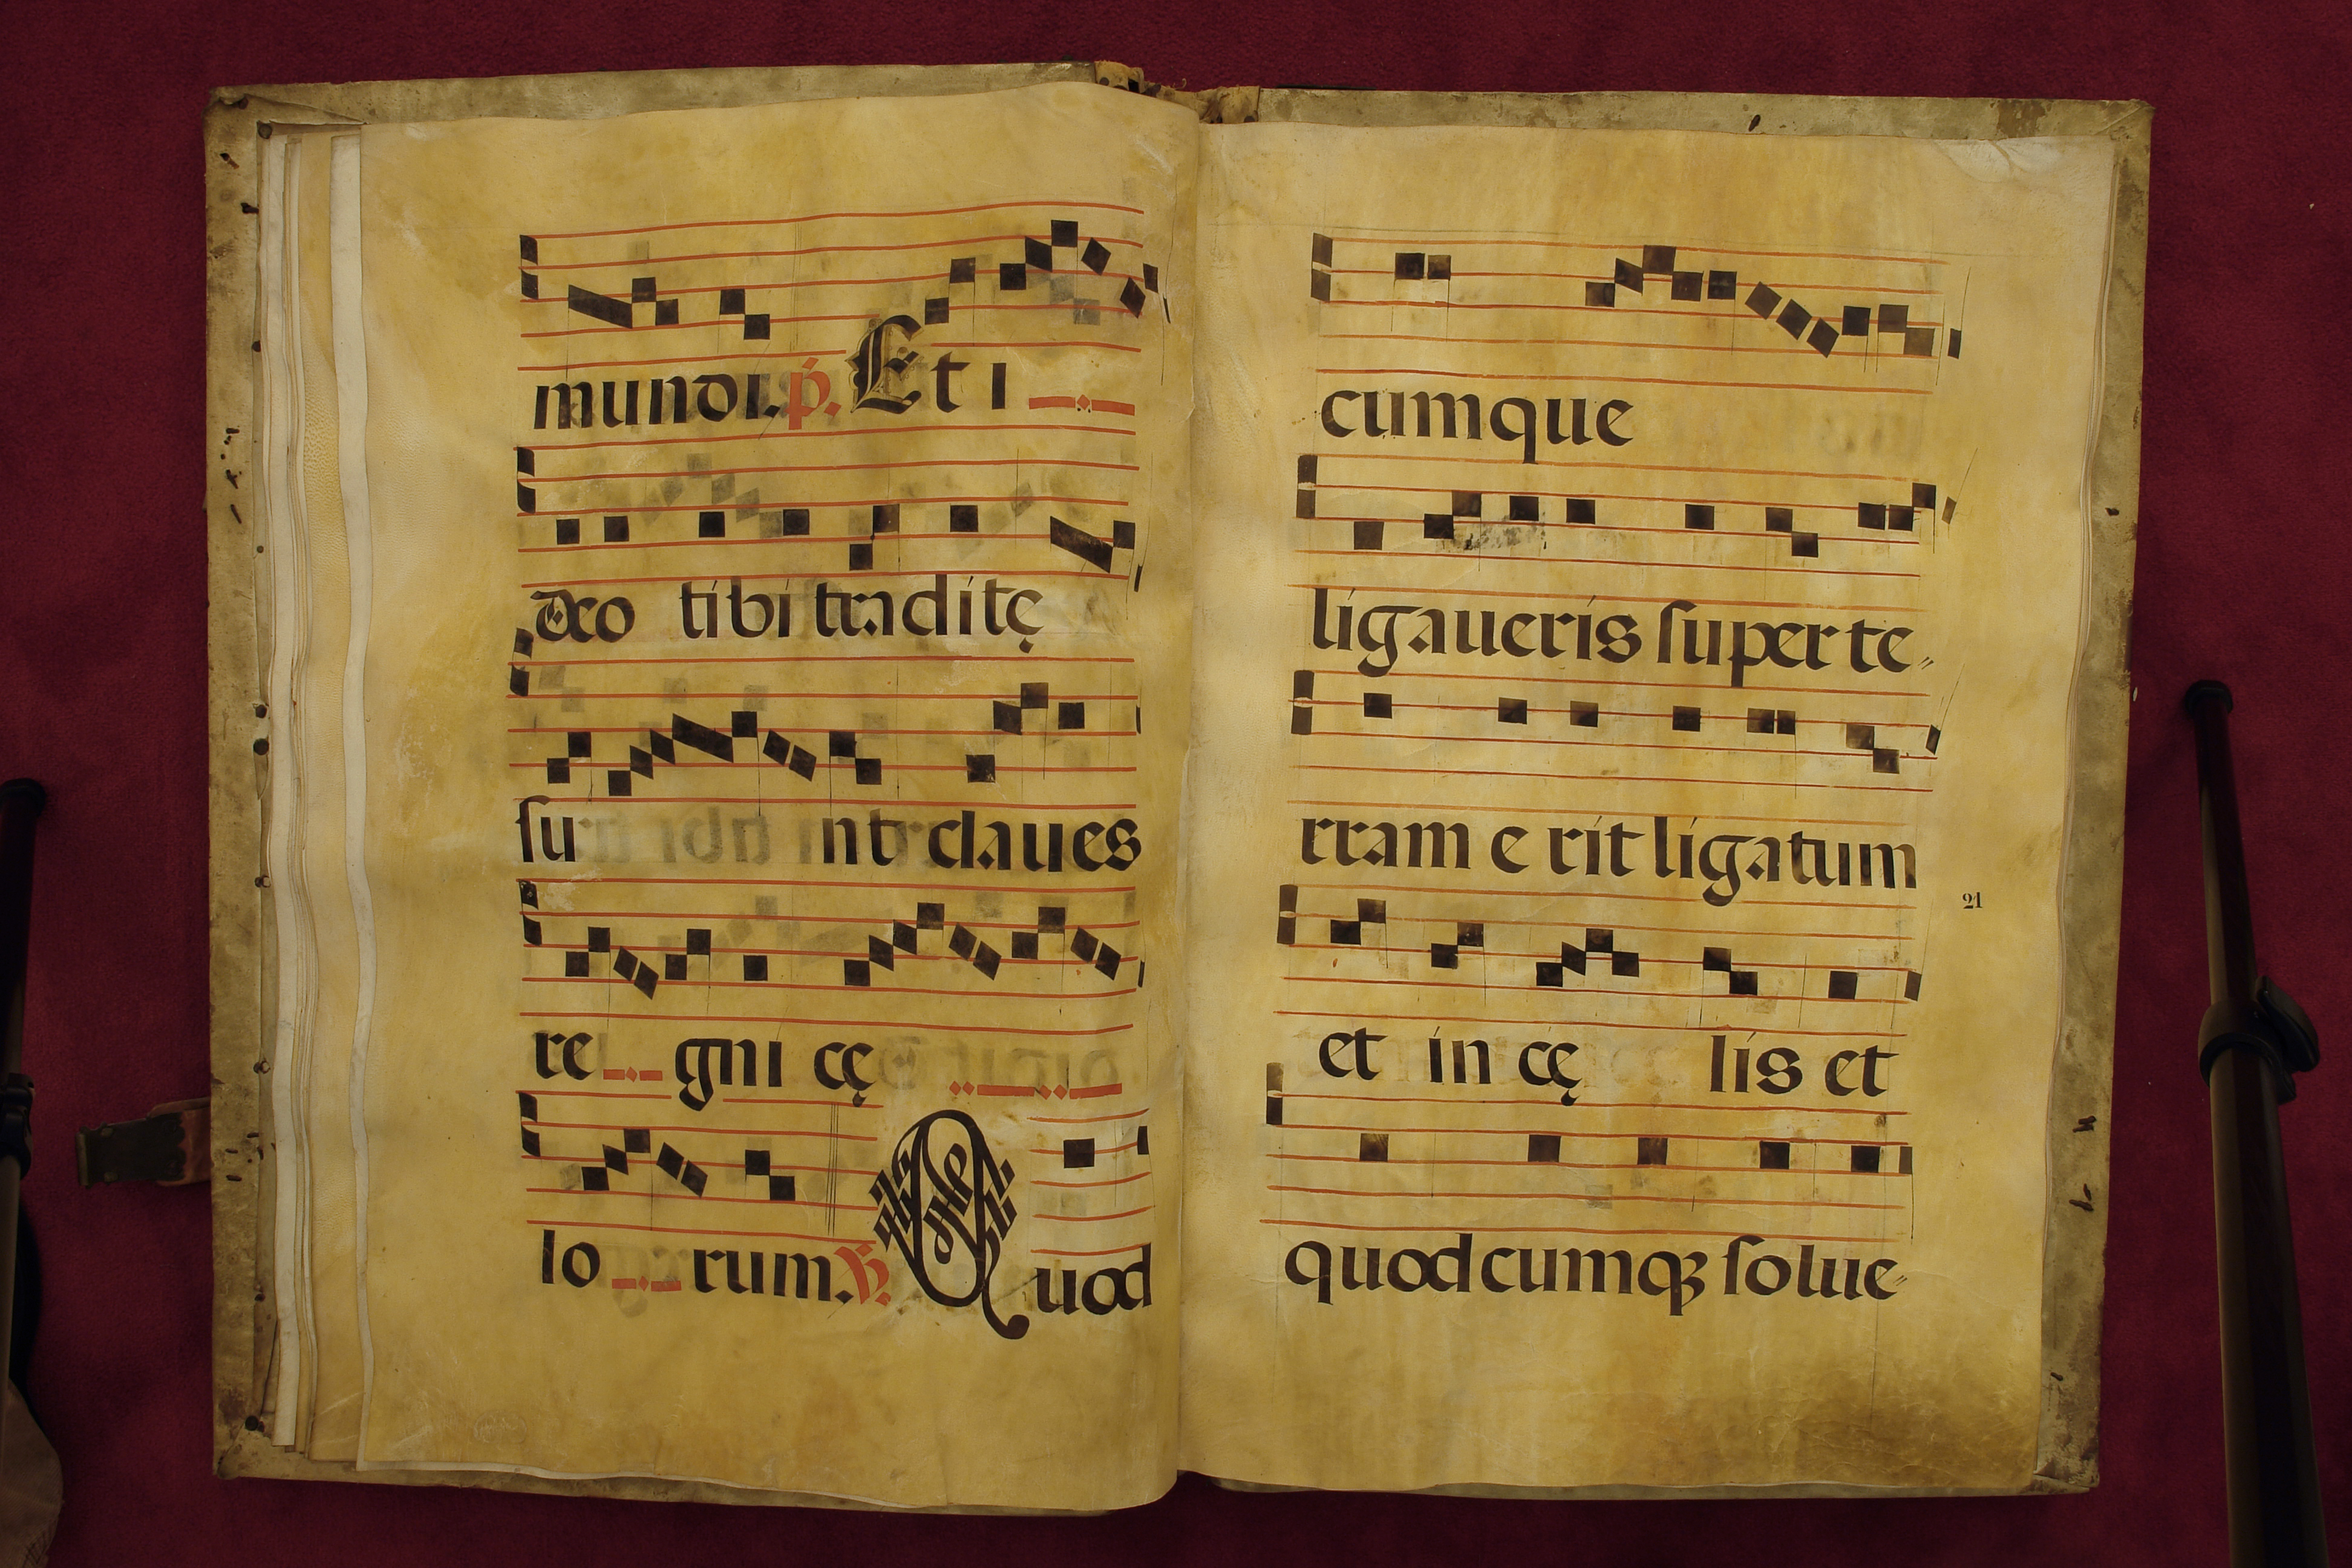 mundi. p. Et i
deo tibi traditę
su nt claues
re gni cę
lo rum. R. Quod
cumque
ligaueris super te
rram e rit ligatum
21
et in cę lis et
quodcumqꝫ solue